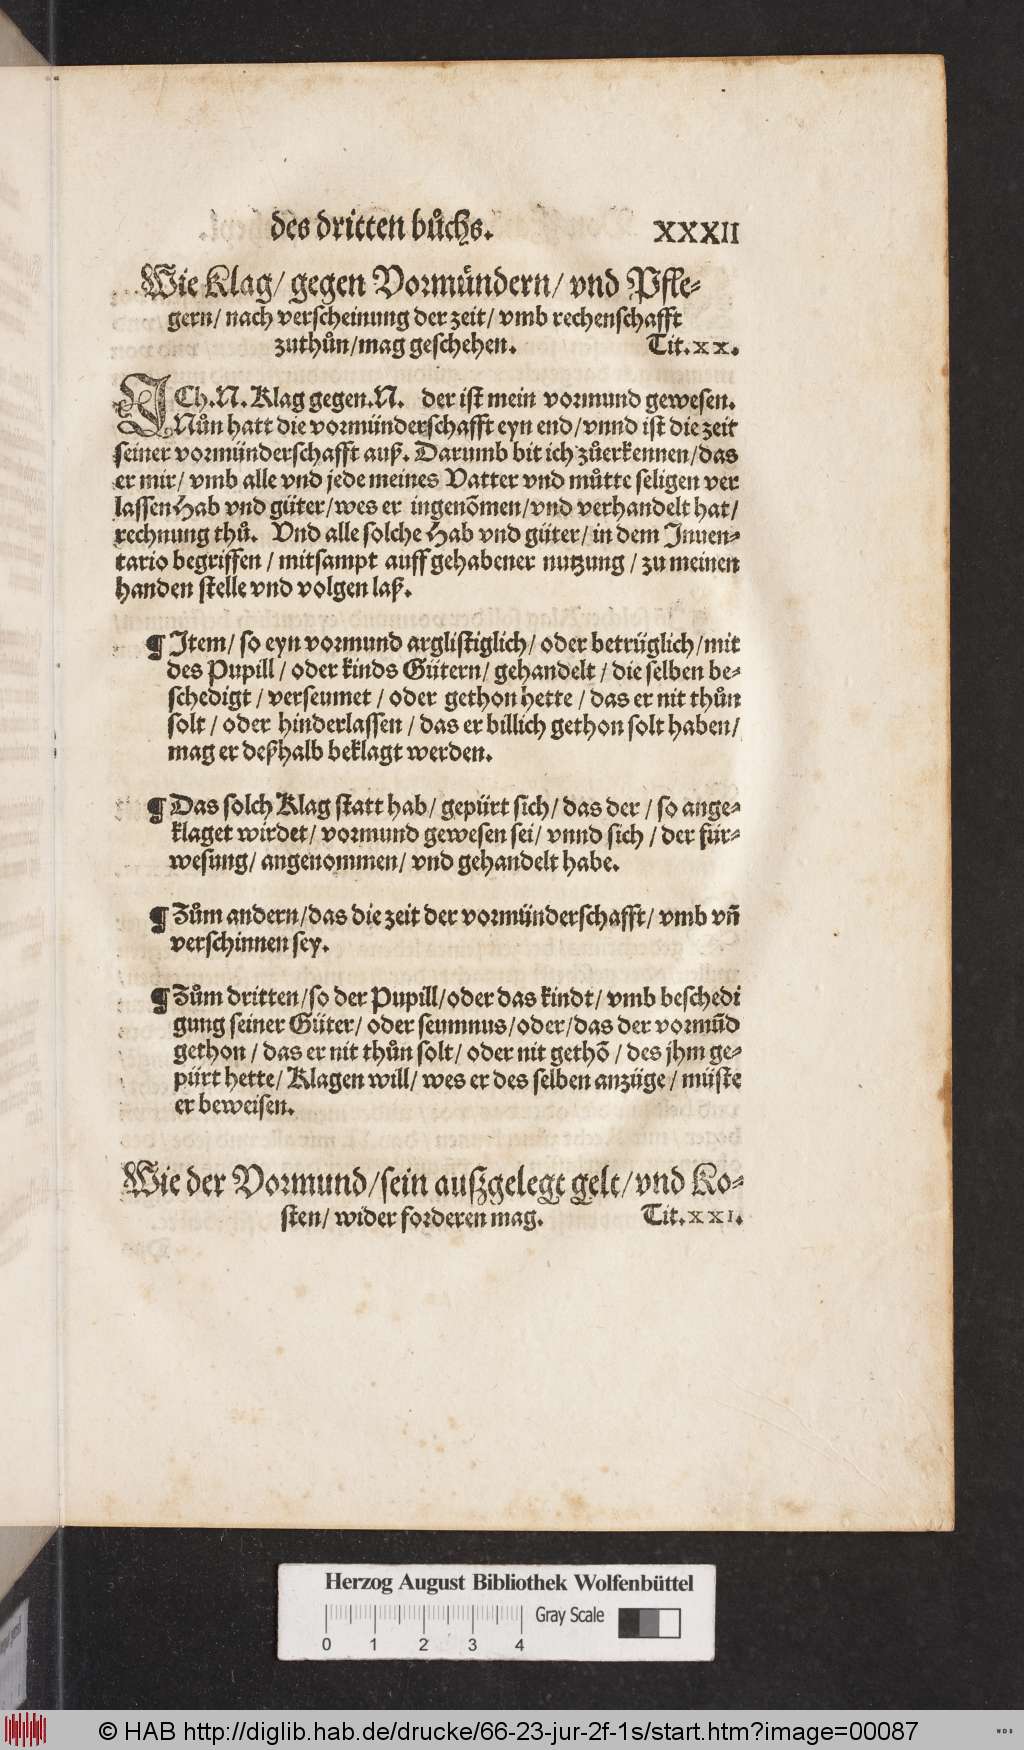 des dritten bůchs. XXXII
Wie Klag/ gegen Vormündern/ vnd Pfle⸗
gern/ nach verscheinung der zeit/ vmb rechenschafft
zuthůn/mag geschehen. Tit.xx.
ICh.N. Klag gegen.N. der ist mein vormund gewesen.
Nůn hatt die vormünderschafft eyn end/vnnd ist die zeit
seiner vormünderschafft auß. Darumb bit ich zůerkennen/das
er mir/ vmb alle vnd jede meines Vatter vnd můtte seligen ver
lassen Hab vnd güter/wes er ingenõmen/vnd verhandelt hat/
rechnung thů. Vnd alle solche Hab vnd güter/ in dem Inuen⸗
tario begriffen / mitsampt auff gehabener nutzung / zu meinen
handen stelle vnd volgen laß.
¶ Item/ so eyn vormund arglistiglich/ oder betrüglich/mit
des Pupill / oder kinds Gütern/ gehandelt / die selben be⸗
schedigt / verseumet / oder gethon hette / das er nit thůn
solt / oder hinderlassen / das er billich gethon solt haben/
mag er deßhalb beklagt werden.
¶ Das solch Klag statt hab/ gepürt sich/ das der / so ange⸗
klaget wirdet/ vormund gewesen sei/ vnnd sich / der für⸗
wesung/ angenommen/ vnd gehandelt habe.
¶ Zům andern/das die zeit der vormünderschafft/ vmb vñ
verschinnen sey.
¶ Zům dritten/so der Pupill/oder das kindt/ vmb beschedi
gung seiner Güter/ oder seumnus/oder/das der vormũd
gethon / das er nit thůn solt/ oder nit gethõ / des jhm ge⸗
pürt hette/ Klagen will/ wes er des selben anzüge / müste
er beweisen.
Wie der Vormund/sein außgelegt gelt/vnd Ko⸗
sten/ wider forderen mag. Tit.xxi.
Herzog August Bibliothek Wolfenbüttel
Gray Scale
0 1 2 3 4
© HAB http://diglib.hab.de/drucke/66-23-jur-2f-1s/start.htm?image=00087